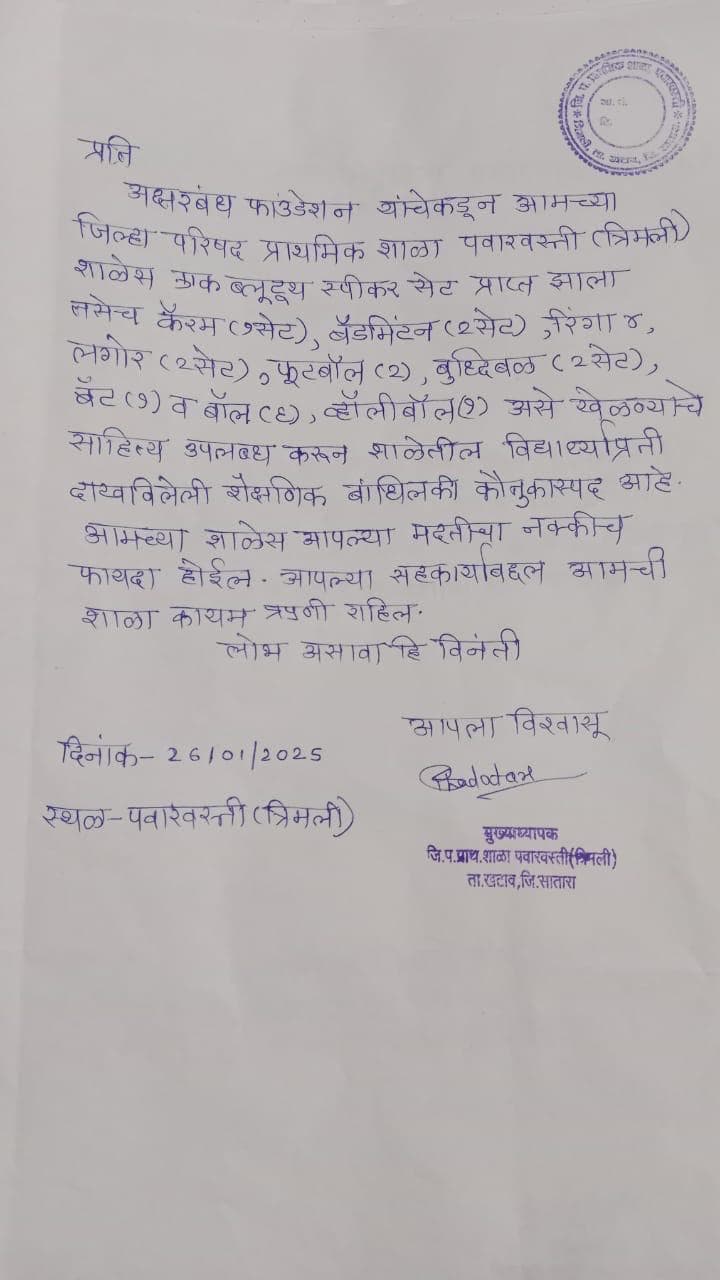 जि. प. प्राथमिक शाळा पवारवस्ती
ता. खटाव, जि. सातारा
प्रति
अक्षरबंध फाउंडेशन यांचेकडून आमच्या
जिल्हा परिषद प्राथमिक शाळा पवारवस्ती (त्रिमली)
शाळेस एक ब्लूटूथ स्पीकर सेट प्राप्त झाला
तसेच कॅरम (१सेट), बॅडमिंटन (२सेट), रिंगा ४,
लगोर (२सेट), फूटबॉल (२), बुध्दिबळ (२सेट),
बॅट (१) व बॉल (६), व्हॉलीबॉल (१) असे खेळण्याचे
साहित्य उपलब्ध करून शाळेतील विद्यार्थ्यांप्रती
दाखविलेली शैक्षणिक बांधिलकी कौतुकास्पद आहे.
आमच्या शाळेस आपल्या मदतीचा नक्कीच
फायदा होईल. आपल्या सहकार्याबद्दल आमची
शाळा कायम ऋणी राहिल.
लोभ असावा हि विनंती
आपला विश्वासू
दिनांक - 26/01/2025
स्थळ - पवारवस्ती (त्रिमली)
मुख्याध्यापक
जि.प.प्राथ.शाळा पवारवस्ती(त्रिमली)
ता.खटाव,जि.सातारा